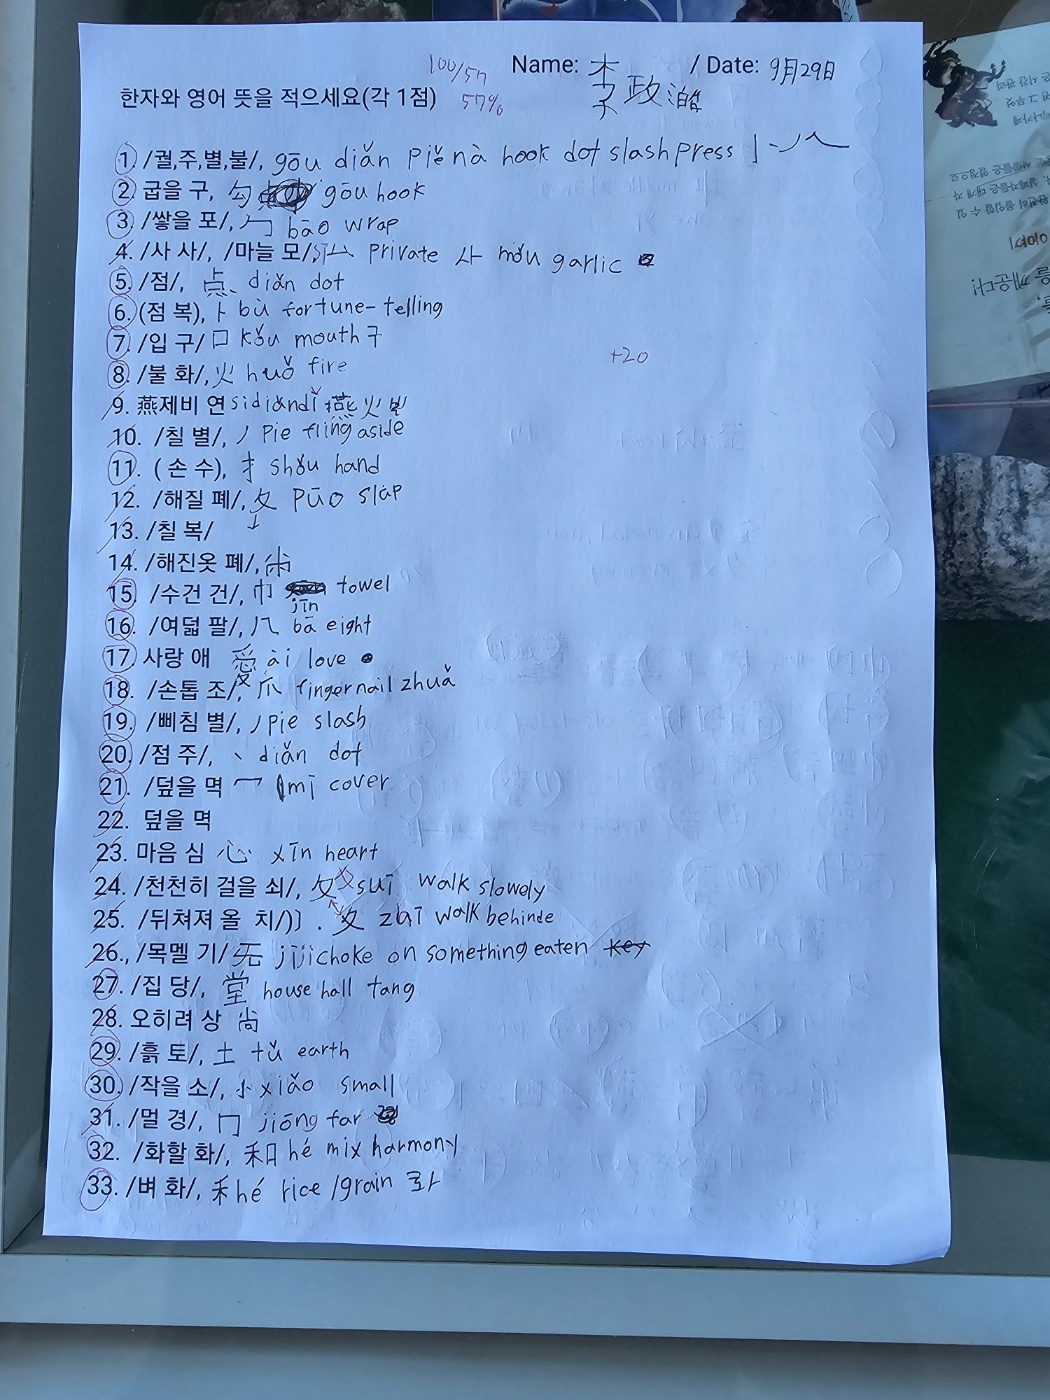 100/57 Name: 李政澔 / Date: 9月29日
한자와 영어 뜻을 적으세요(각 1점) 57%
1. /궐,주,별,불/, gōu diǎn Piě nà hook dot slash press 亅丶丿乀
2. 굽을 구, 勾 gōu hook
3. /쌓을 포/, 勹 bāo wrap
4. /사 사/, /마늘 모/, 厶 private 厶 mǒu garlic
5. /점/, 点、 diǎn dot
6. (점 복), 卜 bǔ fortune-telling
7. /입 구/ 口 kǒu mouth 구
8. /불 화/, 火 huǒ fire
+20
9. 燕제비 연 sìdiǎndǐ 燕 火 灬
10. /칠 별/, 丿 Pie fling aside
11. (손 수), 扌 shǒu hand
12. /해질 폐/, 攵 pūo slap
13. /칠 복/ ↓
14. /해진옷 폐/, 㡀
15. /수건 건/, 巾 jīn towel
16. /여덟 팔/, 八 bā eight
17. 사랑 애 愛 ài love
18. /손톱 조/, 爪 fingernail zhuǎ
19. /삐침 별/, 丿 pie slash
20. /점 주/, 丶 diǎn dot
21. /덮을 멱 冖 mī cover
22. 덮을 멱
23. 마음 심 心 xīn heart
24. /천천히 걸을 쇠/, 夂 suī walk slowely
25. /뒤쳐져 올 치/)) . 夊 zhǐ walk behinde
26., /목멜 기/ 旡 jì choke on something eaten
27. /집 당/, 堂 house hall tang
28. 오히려 상 尚
29. /흙 토/, 土 tǔ earth
30. /작을 소/, 小 xiǎo small
31. /멀 경/, 冂 jiōng far
32. /화할 화/, 和 hé mix harmony
33. /벼 화/, 禾 hé rice /grain 화